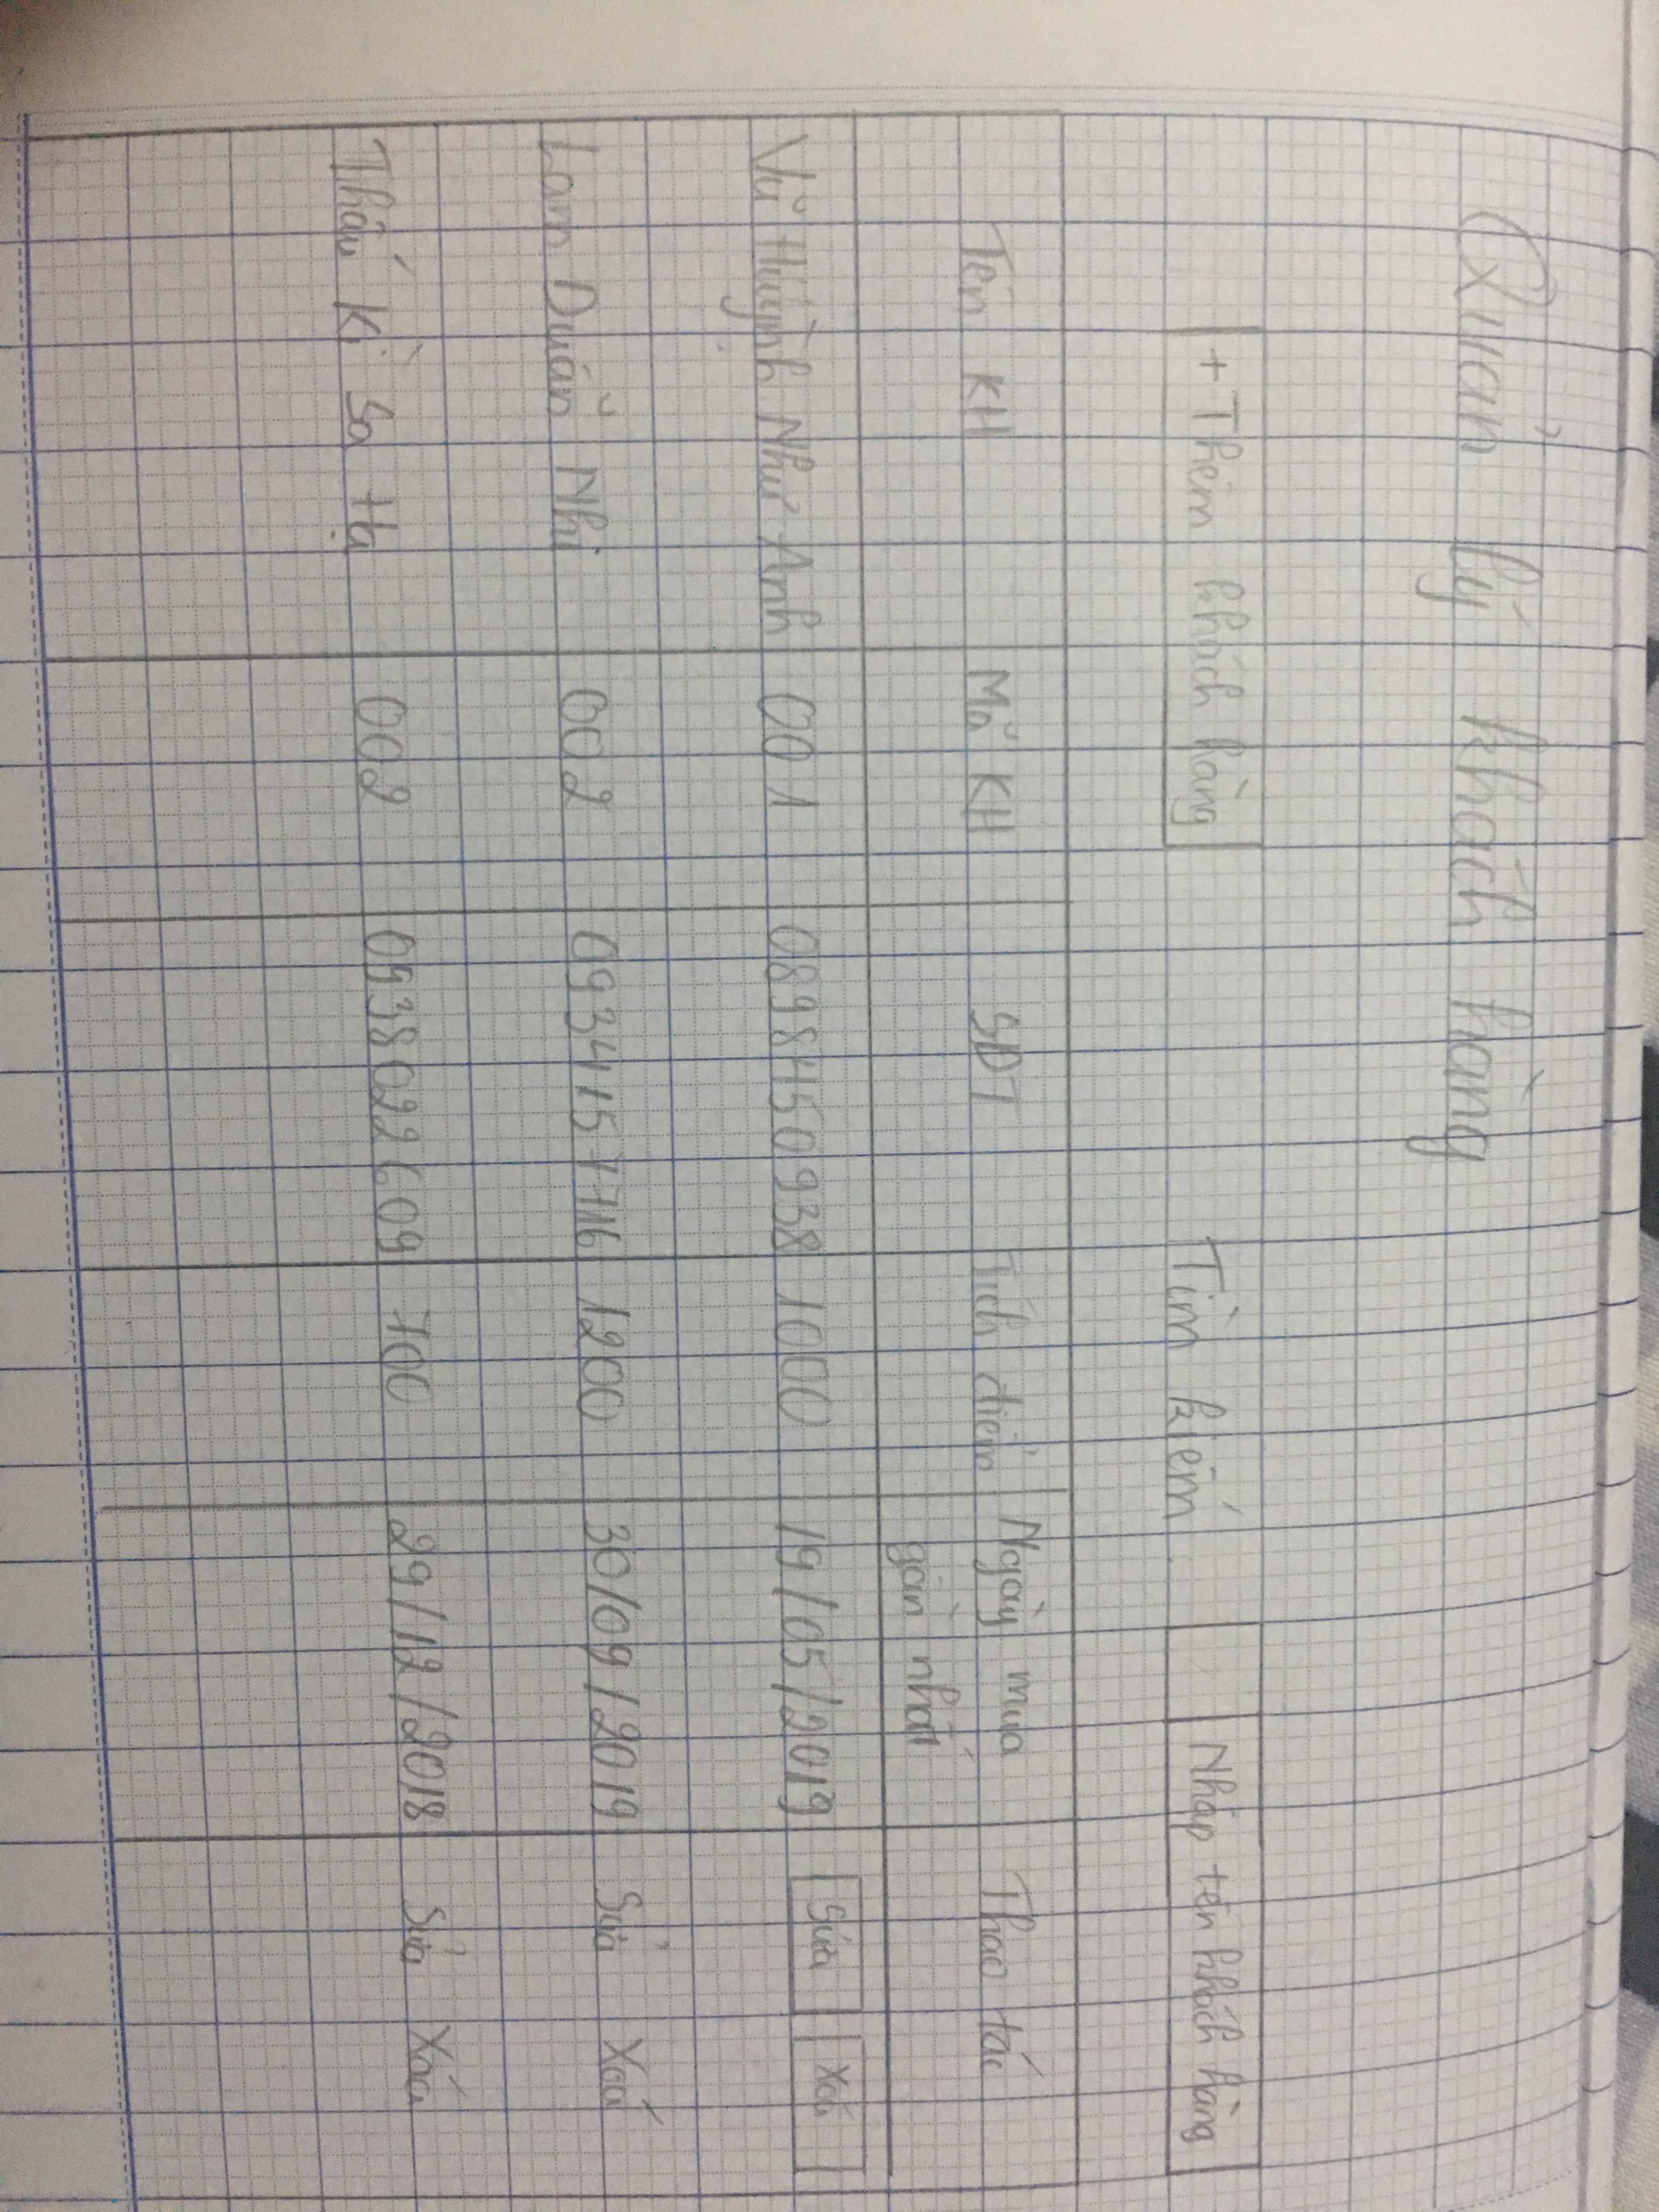 Quản lý khách hàng
+ Thêm khách hàng Tìm kiếm Nhập tên khách hàng
Tên KH Mã KH SDT Tích điểm Ngày mua gần nhất Thao tác
Vũ Huỳnh Như Anh 001 0898450938 1000 19/05/2019 Sửa Xoá
Lam Duẫn Nhi 002 0934157716 1200 30/09/2019 Sửa Xoá
Thấu Kì Sa Hạ 002 0938022609 700 29/12/2018 Sửa Xoá